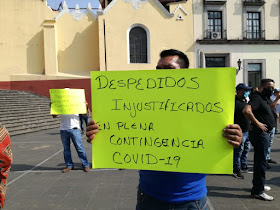 DESPEDIDOS
INJUSTIFICADOS
EN PLENA
CONTINGENCIA
COVID-19